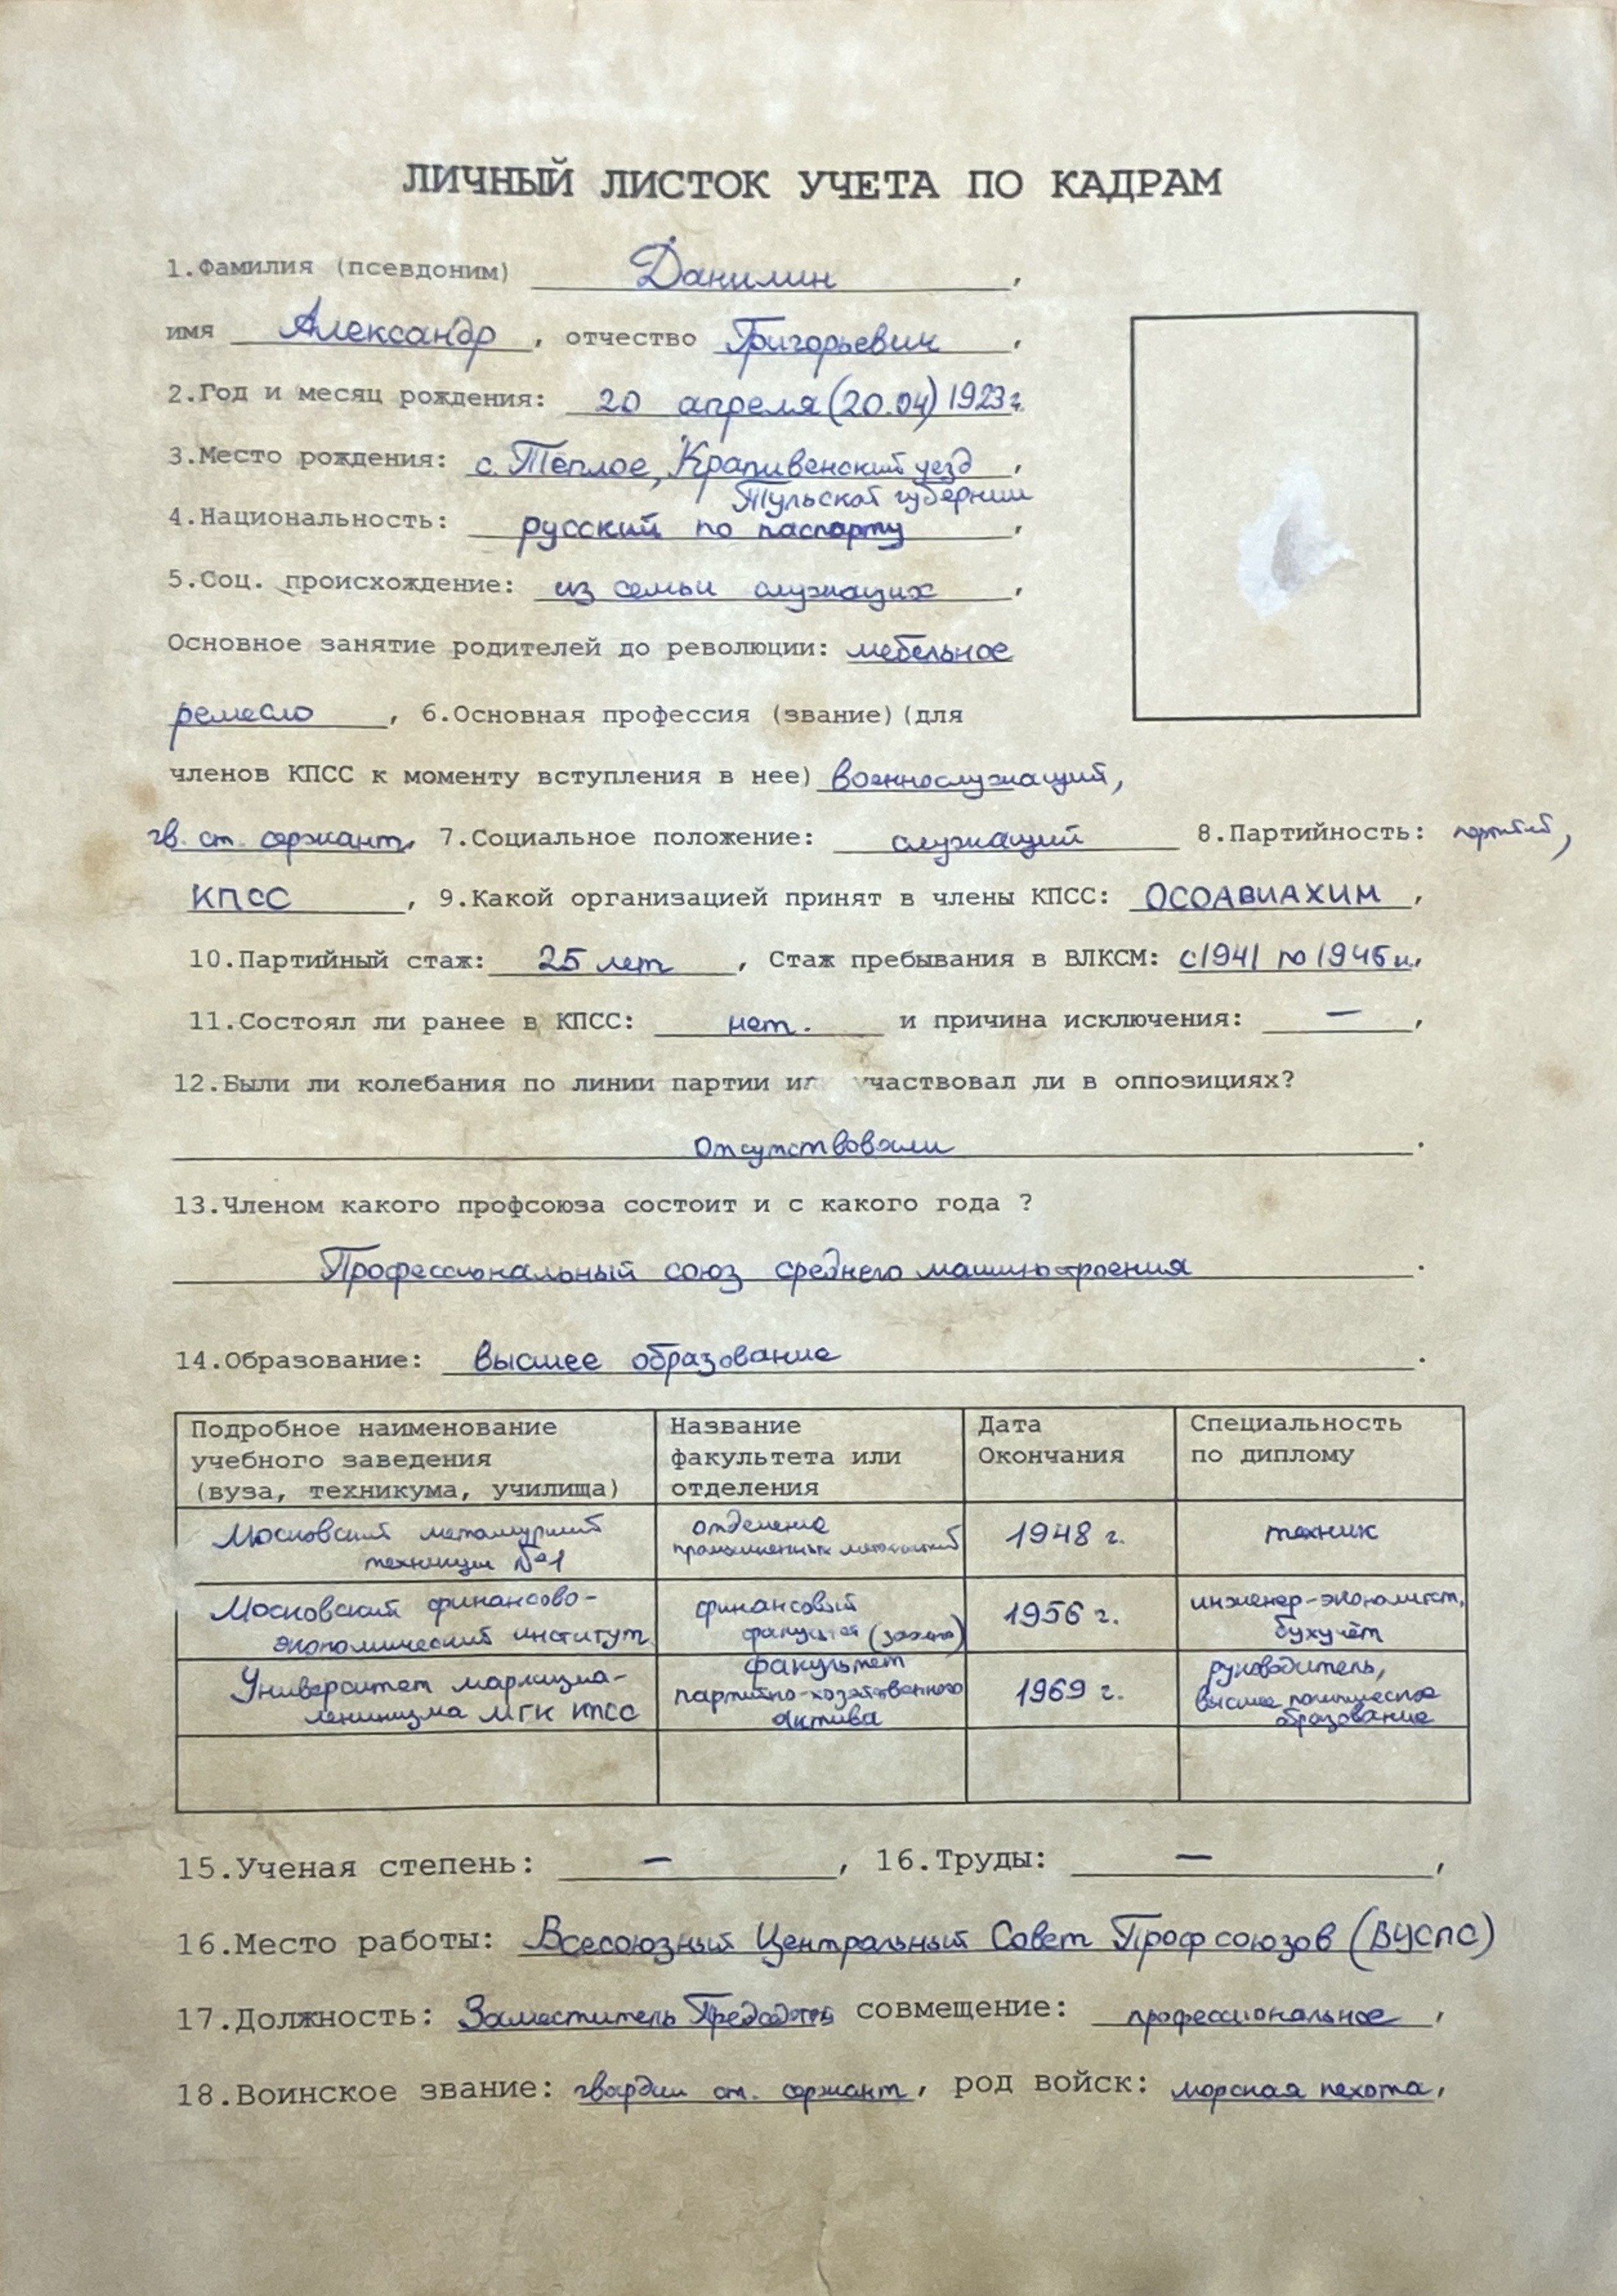 ЛИЧНЫЙ ЛИСТОК УЧЕТА ПО КАДРАМ
1.Фамилия (псевдоним) Данилин,
имя Александр, отчество Григорьевич,
2.Год и месяц рождения: 20 апреля (20.04) 1923 г.
3.Место рождения: с. Тёплое, Крапивенский уезд,
Тульской губернии
4.Национальность: русский по паспорту,
5.Соц. происхождение: из семьи служащих,
Основное занятие родителей до революции: мебельное
ремесло, 6.Основная профессия (звание)(для
членов КПСС к моменту вступления в нее) военнослужащий,
гв. ст. сержант, 7.Социальное положение: служащий 8.Партийность:
КПСС, 9.Какой организацией принят в члены КПСС: ОСОАВИАХИМ,
10.Партийный стаж: 25 лет, Стаж пребывания в ВЛКСМ: с 1941 по 1945
11.Состоял ли ранее в КПСС: нет. и причина исключения: —,
12.Были ли колебания по линии партии участвовал ли в оппозициях?
Отсутствовали.
13.Членом какого профсоюза состоит и с какого года ?
Профессиональный союз среднего машиностроения.
14.Образование: высшее образование.
Подробное наименование Название Дата Специальность
учебного заведения факультета или Окончания по диплому
(вуза, техникума, училища) отделения
Московский отделение 1948 г. техник
техникум №1
Московский финансово- финансовый 1956 г. инженер-экономист,
экономический институт факультет бухучёт
Университет марксизма- факультет 1969 г. руководитель,
ленинизма МГК КПСС партийно-хозяйственного высшее политическое
актива образование
15.Ученая степень: —, 16.Труды: —,
16.Место работы: Всесоюзный Центральный Совет Профсоюзов (ВЦСПС)
17.Должность: Заместитель совмещение: профессиональное,
18.Воинское звание: гвардии ст. сержант, род войск: морская пехота,